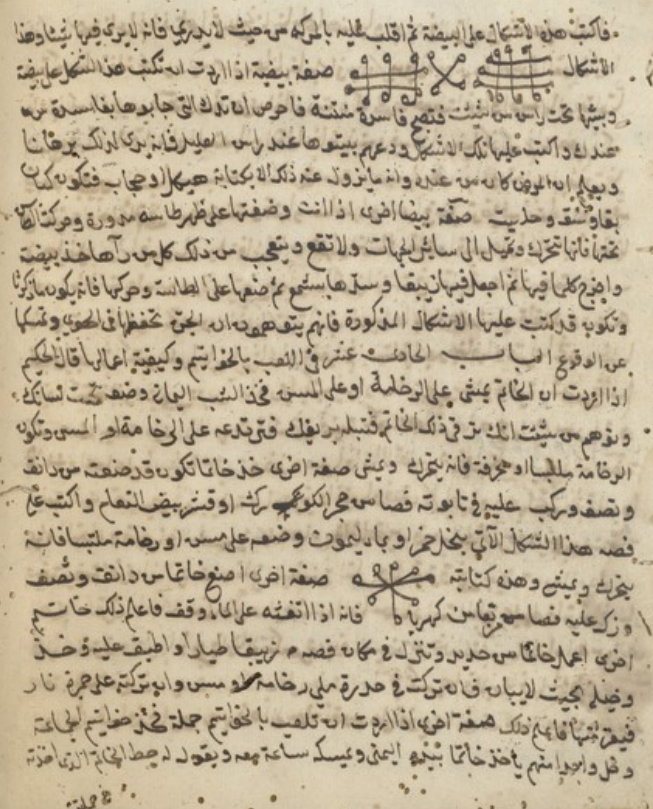 فاكتب هذه الاشكال على البيضة ثم اقلب عليه بالمركبه من حيث لا يدري فانه لا يرى فيها شيئا وهذا
الاشكال صفة بيضة اذا اردت ان تكتب هذا الشكل على بيضة
وبيتها تحت راس من شئت فتصبح فاسدة منتنة فاحرص ان تلك التي جابوها بفاسدة من
عندك واكتب عليها تلك الاشكال ودعهم يبيتوها عند راس العليل فانه يرى لذلك برهانا
ويعلم ان المرض كان من عنده وانه ما يزول عنه ذلك الا بكتابة هيكل او حجاب فتكون
صفة بيضا اخرى اذا انت وضعتها على ظهر طاسه مدورة وحركت الطاسه
تحتها فانها تتحرك وتميل الى سائر الجهات ولا تقع ويتعجب من ذلك كل من رآها خذ بيضة
واخرج كلما فيها ثم اجعل فيها زيبقا وسدها بشمع ثم ضعها على الطاسة وحركها فانه يكون ما ذكرنا
وتكون قد كتبت عليها الاشكال المذكورة فانهم يتوهمون ان الجن تحفظها في الهوى وتمسكها
عن الوقوع الباب الحادي عشر في اللعب بالخواتيم وكيفية اعمالها قال الحكيم
اذا اردت ان الخاتم يمشي على الرخامة او على المسن فخذ الشب اليماني وضعه تحت لسانك
وتوهم من شئت انك تزقي ذلك الخاتم فتبله بريقك فترى تدعه على الرخامة او المسن وتكون
الرخامة ملتسا او محرفة فانه يتحرك ويمشي صفة اخرى خذ خاتما تكون قد صنعته من دانق
ونصف وركب عليه في تابوته فصا من حجر الكوكب رك او قشر بيض النعام واكتب على
فصه هذا الشكل الآتي بخل خمر او بماء ليمون وضعه على مسن او رخامة ملتسا فانه
يتحرك ويمشي وهذه كتابته صفة اخرى اصنع خاتما من دانق ونصف
وركب عليه فصا من كهربا فانه اذا اتقنته على الماء وقف فاعلم ذلك خاتم
اخرى اعمل خاتما من حديد وتنزل في مكان فصه زيبقا طيارا واطبق عليه وخذ
وصله بحيث لا يبان فان تركته في حدرة على رخامة او مسن وان تركته على جمرة نار
فيقفز منها فاعلم ذلك صفة اخرى اذا اردت ان تلعب بالخواتيم جملة فخذ خواتيم الجماعة
وخل واحدا منهم ياخذ خاتما بيده اليمنى ويمسكه ساعة معه ويقول له حط الخاتم الذي اخذته